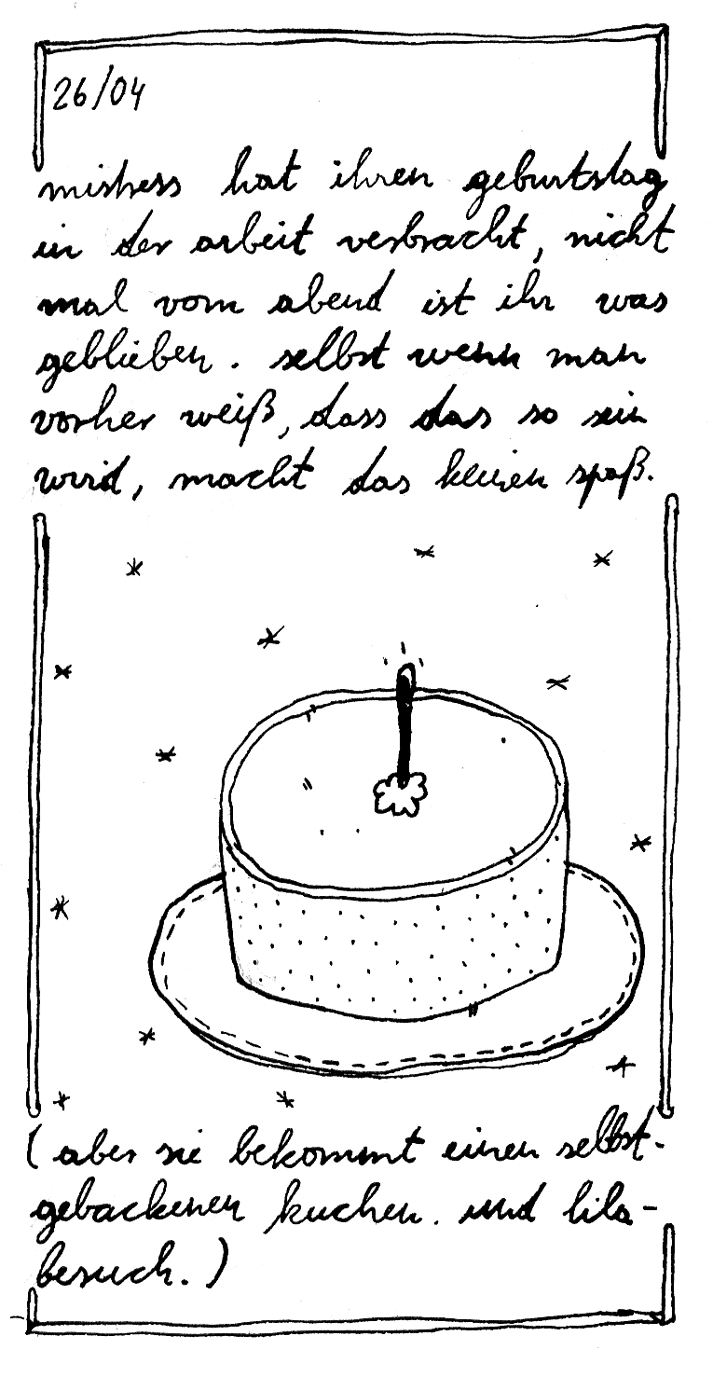 26/04
mistress hat ihren geburtstag
in der arbeit verbracht, nicht
mal vom abend ist ihr was
geblieben. selbst wenn man
vorher weiß, dass das so sein
wird, macht das keinen spaß.
(aber sie bekommt einen selbst-
gebackenen kuchen. und lila-
besuch.)